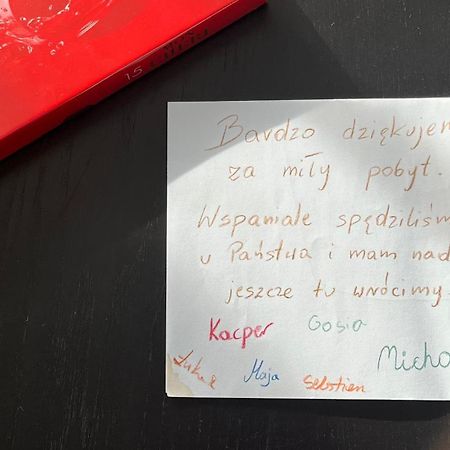 Bardzo dziękujem
za miły pobyt.
Wspaniale spędziliśm
u Państwa i mam nad
jeszcze tu wrócimy
Kacper Gosia
Micha
Maja Sebastian